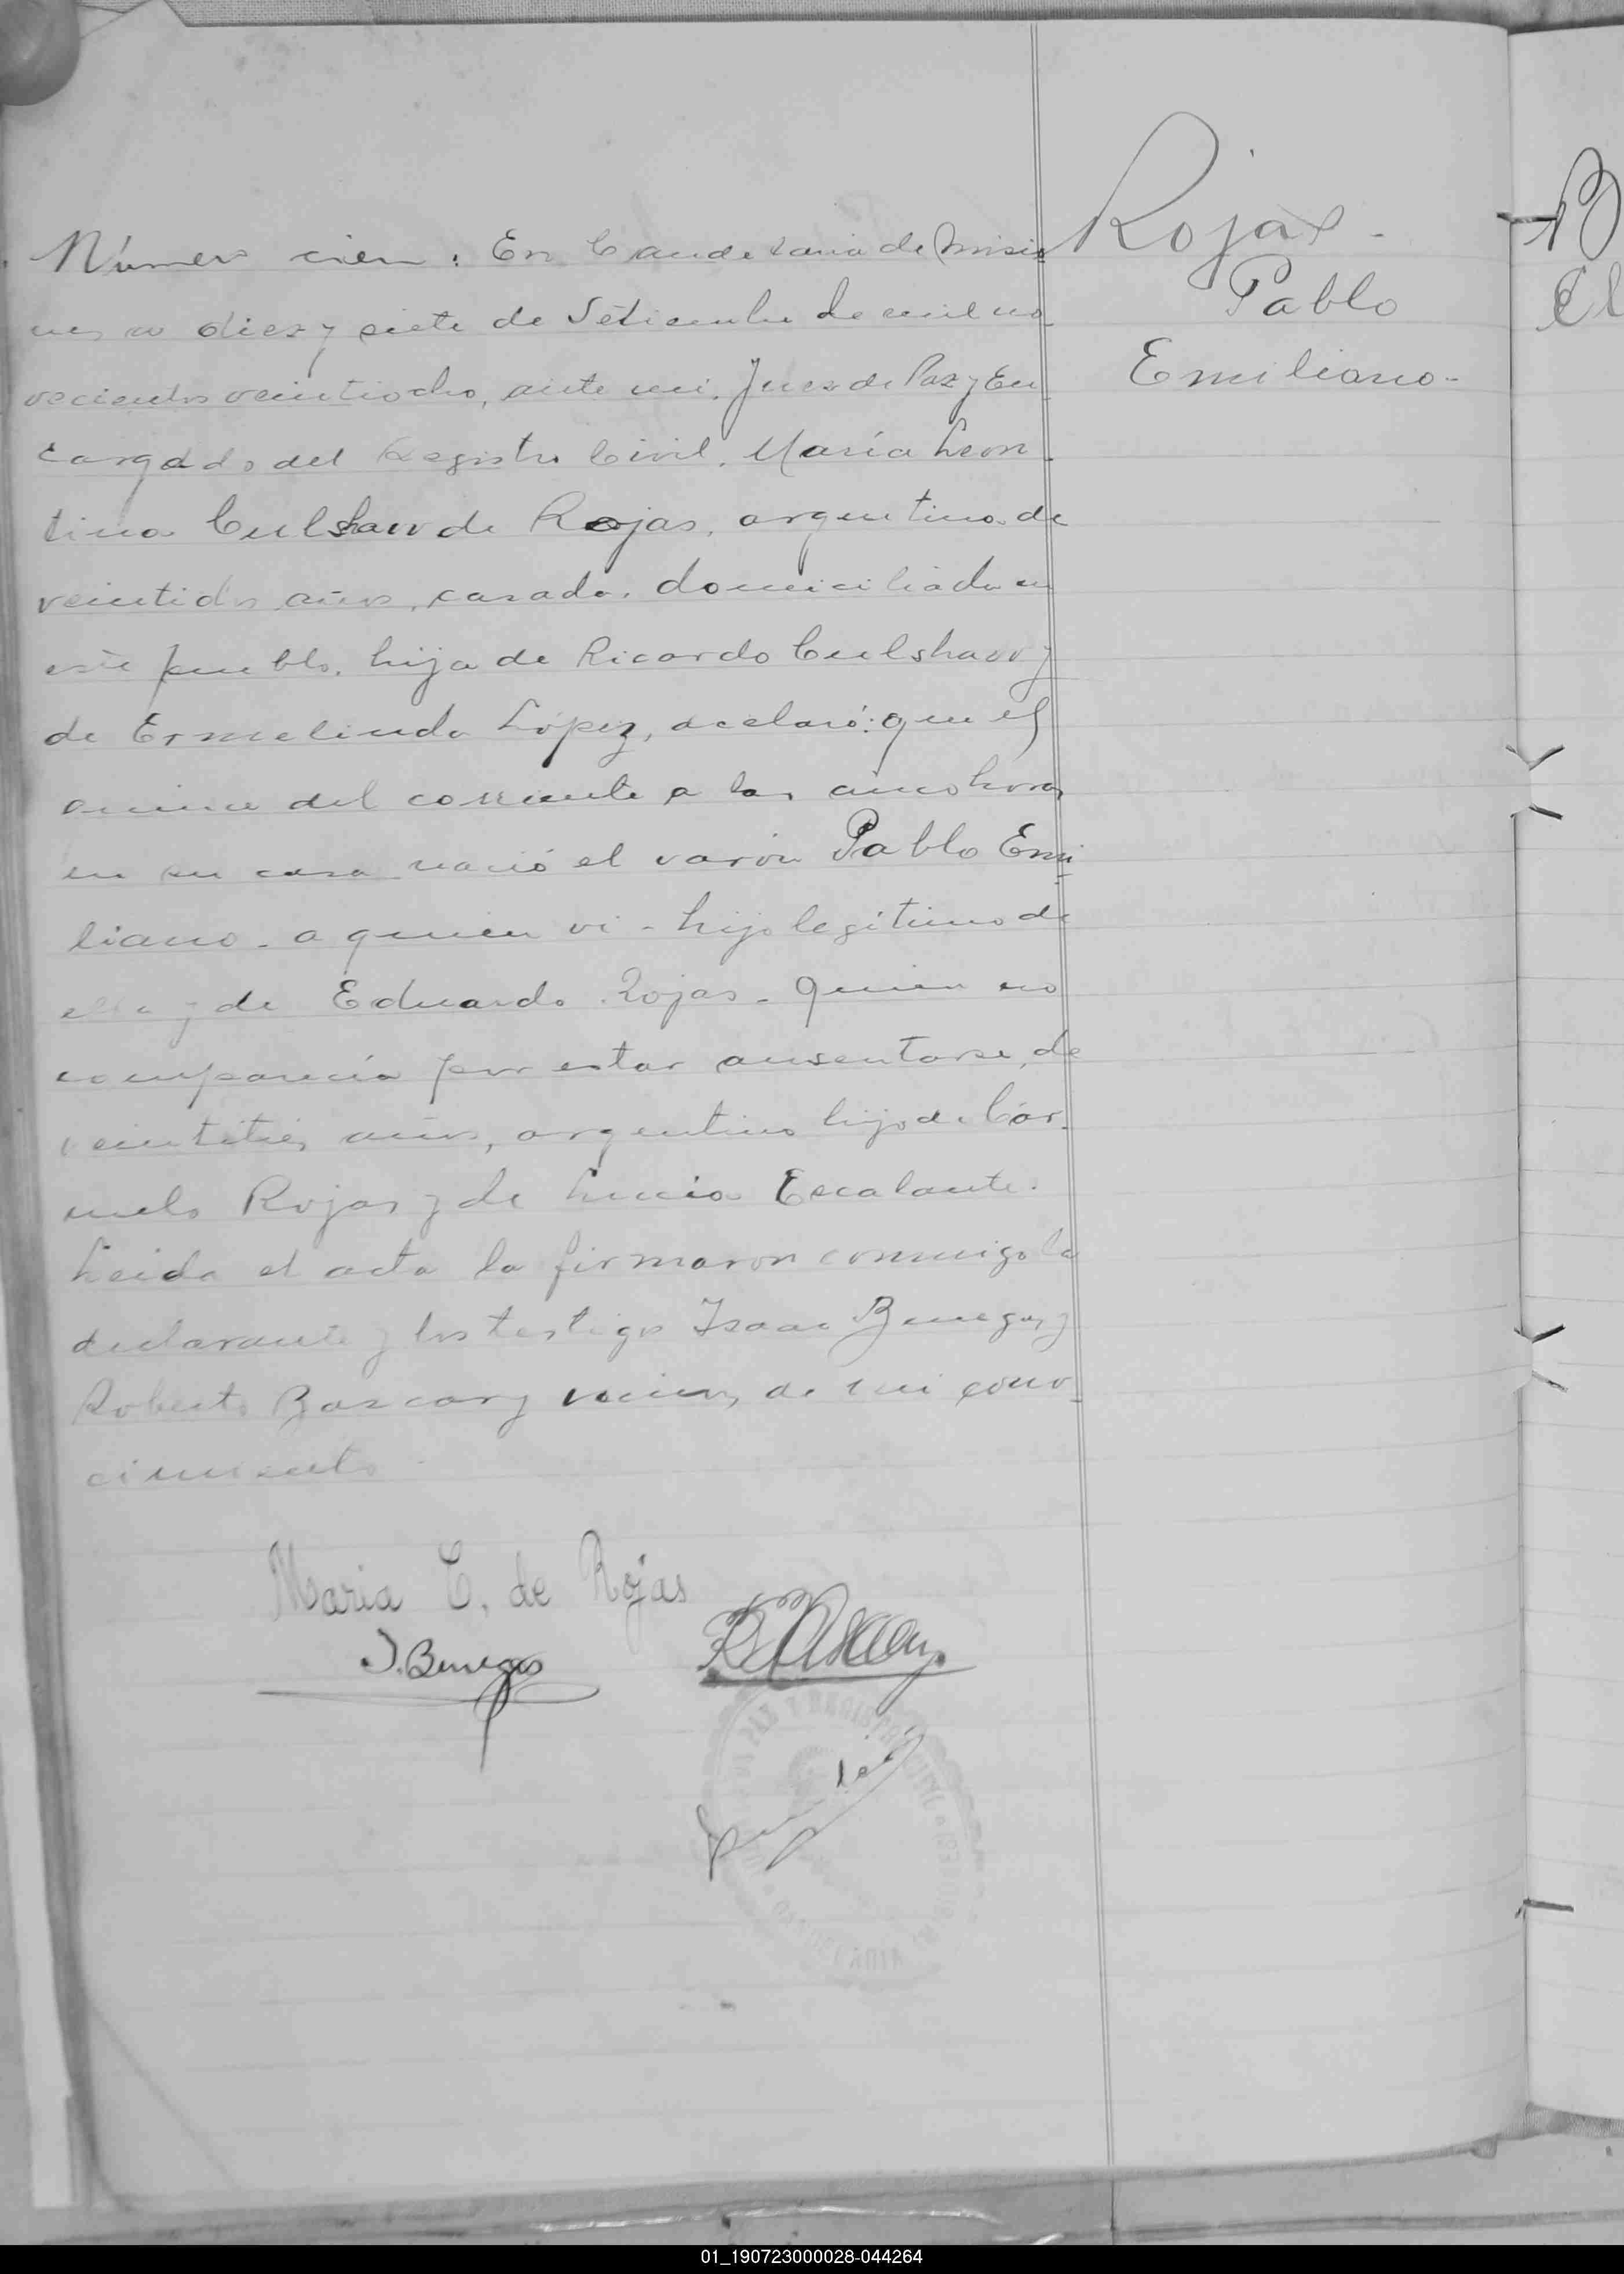 Rojas -
Pablo
Emiliano -
Número cien : En Candelaria de Misio
nes a diez y siete de Setiembre de mil no-
vecientos veintiocho, ante mi, Juez de Paz y En-
cargado del Registro Civil, María Leon-
tina Culshaw de Rojas, argentina de
veintidos años, casada, domiciliada en
este pueblo, hija de Ricardo Culshaw y
de Ermelinda López, declaró: que el
quince del corriente a las cinco horas
en su casa nació el varón Pablo Emi-
liano - a quien vi - hijo legítimo de
ella y de Eduardo Rojas - quien no
comparecía por estar ausentarse, de
veintitrés años, argentino hijo de Cár-
melo Rojas y de Lucia Escalante.
Leida el acta la firmaron conmigo la
declarante y los testigos Isaac Benegas y
Roberto Bascary vecinos de mi cono-
cimiento
Maria C. de Rojas
I. Benegas
01_190723000028-044264